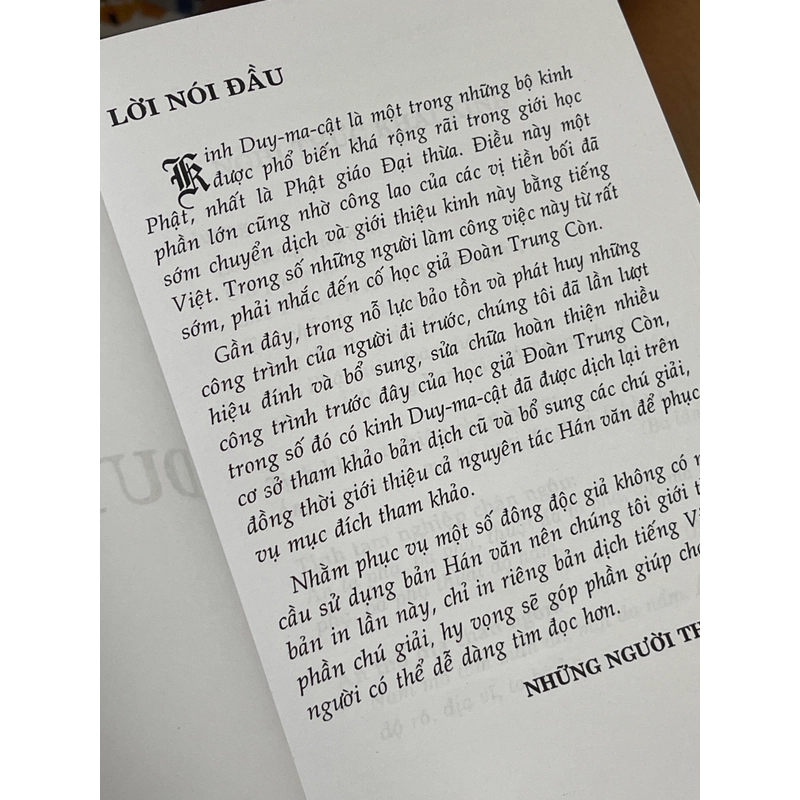 LỜI NÓI ĐẦU
Kinh Duy-ma-cật là một trong những bộ kinh
được phổ biến khá rộng rãi trong giới học
Phật, nhất là Phật giáo Đại thừa. Điều này một
phần lớn cũng nhờ công lao của các vị tiền bối đã
sớm chuyển dịch và giới thiệu kinh này bằng tiếng
Việt. Trong số những người làm công việc này từ rất
sớm, phải nhắc đến cố học giả Đoàn Trung Còn.
Gần đây, trong nỗ lực bảo tồn và phát huy những
công trình của người đi trước, chúng tôi đã lần lượt
hiệu đính và bổ sung, sửa chữa hoàn thiện nhiều
công trình trước đây của học giả Đoàn Trung Còn,
trong số đó có kinh Duy-ma-cật đã được dịch lại trên
cơ sở tham khảo bản dịch cũ và bổ sung các chú giải,
đồng thời giới thiệu cả nguyên tác Hán văn để phục
vụ mục đích tham khảo.
Nhằm phục vụ một số đông độc giả không có
cầu sử dụng bản Hán văn nên chúng tôi giới
bản in lần này, chỉ in riêng bản dịch tiếng
phần chú giải, hy vọng sẽ góp phần giúp
người có thể dễ dàng tìm đọc hơn.
NHỮNG NGƯỜI